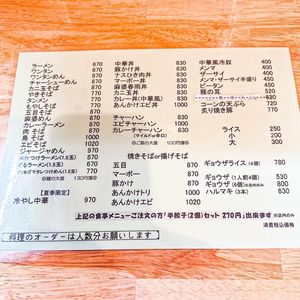 ラーメン 670
ワンタン 670
ワンタンめん 870
チャーシューめん 870
カニ玉そば 870
やきそば 770
タンメン 770
もやしそば 770
五目そば 870
マーボーめん 870
カレーラーメン 870
肉 そば 870
鳥 そば 870
エビそば 1000
ジャージャめん 870
【夏季限定】
冷やし中華 970
中華丼 830
豚かけ丼 830
ナスひき肉丼 830
麻婆春雨丼 830
マーボー丼 830
カニ玉丼 830
カレー丼(中華風) 830
あんかけエビ丼 1000
チャーハン 830
エビチャーハン
カレーチャーハン
焼きそばor揚げそば
五目 870
マーボー 870
豚かけ 870
あんかけトリ 1000
あんかけエビ 1000
中華風冷奴 400
メンマ 400
ザーサイ 400
メンマ・ザーサイ半盛り
ピータン
豚の耳
コーンの天ぷら
炙り焼き豚
ライス
小
大 300
ギョウザライス (6個) 780
ギョウザ (1人前4個)
ギョウザ (6個)
ハルマキ (3本)
上記の食事メニューご注文の方「辛餃子(2個)セット 270円」出来ます
消費税込価格
料理のオーダーは人数分お願いします